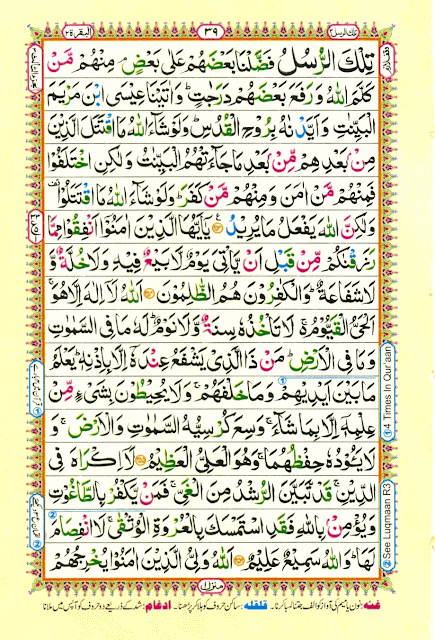 تلك الرسل ٣
٣٩
البقرة ٢
تِلْكَ الرُّسُلُ فَضَّلْنَا بَعْضَهُمْ عَلٰى بَعْضٍ ۘ مِنْهُمْ مَّنْ
كَلَّمَ اللّٰهُ وَرَفَعَ بَعْضَهُمْ دَرَجٰتٍ ؕ وَاٰتَيْنَا عِيْسَى ابْنَ مَرْيَمَ
الْبَيِّنٰتِ وَاَيَّدْنٰهُ بِرُوْحِ الْقُدُسِ ؕ وَلَوْ شَآءَ اللّٰهُ مَا اقْتَتَلَ الَّذِيْنَ
مِنْۢ بَعْدِهِمْ مِّنْۢ بَعْدِ مَا جَآءَتْهُمُ الْبَيِّنٰتُ وَلٰكِنِ اخْتَلَفُوْا
فَمِنْهُمْ مَّنْ اٰمَنَ وَمِنْهُمْ مَّنْ كَفَرَ ؕ وَلَوْ شَآءَ اللّٰهُ مَا اقْتَتَلُوْا
وَلٰكِنَّ اللّٰهَ يَفْعَلُ مَا يُرِيْدُ ۞ يٰۤاَيُّهَا الَّذِيْنَ اٰمَنُوْۤا اَنْفِقُوْا مِمَّا
رَزَقْنٰكُمْ مِّنْ قَبْلِ اَنْ يَّاْتِيَ يَوْمٌ لَّا بَيْعٌ فِيْهِ وَلَا خُلَّةٌ وَّ
لَا شَفَاعَةٌ ؕ وَالْكٰفِرُوْنَ هُمُ الظّٰلِمُوْنَ ۞ اَللّٰهُ لَاۤ اِلٰهَ اِلَّا هُوَ ۚ
اَلْحَيُّ الْقَيُّوْمُ ۚ لَا تَاْخُذُهٗ سِنَةٌ وَّلَا نَوْمٌ ؕ لَهٗ مَا فِي السَّمٰوٰتِ
وَمَا فِي الْاَرْضِ ؕ مَنْ ذَا الَّذِيْ يَشْفَعُ عِنْدَهٗۤ اِلَّا بِاِذْنِهٖ ؕ يَعْلَمُ
مَا بَيْنَ اَيْدِيْهِمْ وَمَا خَلْفَهُمْ ۚ وَلَا يُحِيْطُوْنَ بِشَيْءٍ مِّنْ
عِلْمِهٖۤ اِلَّا بِمَا شَآءَ ۚ وَسِعَ كُرْسِيُّهُ السَّمٰوٰتِ وَالْاَرْضَ ۚ وَ
لَا يَئُوْدُهٗ حِفْظُهُمَا ۚ وَهُوَ الْعَلِيُّ الْعَظِيْمُ ۞ لَاۤ اِكْرَاهَ فِي
الدِّيْنِ ۙ قَدْ تَّبَيَّنَ الرُّشْدُ مِنَ الْغَيِّ ۚ فَمَنْ يَّكْفُرْ بِالطَّاغُوْتِ
وَيُؤْمِنْۢ بِاللّٰهِ فَقَدِ اسْتَمْسَكَ بِالْعُرْوَةِ الْوُثْقٰى ۗ لَا انْفِصَامَ
لَهَا ؕ وَاللّٰهُ سَمِيْعٌ عَلِيْمٌ ۞ اَللّٰهُ وَلِيُّ الَّذِيْنَ اٰمَنُوْا يُخْرِجُهُمْ
① 4 Times In Qur'aan
② See Luqmaan R3
منزل ١
غنہ: نون یا میم کی آواز کو الف جتنا لمبا کرنا۔ قلقلہ: ساکن حروف کو ہلا کر پڑھنا۔ ادغام: شد کے ذریعے دو حروف کو آپس میں ملانا